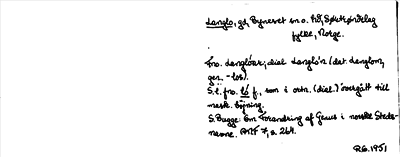 Langlo, gd, Byneset sn o. hd, Sør-Trøndelag
fylke, Norge.
Fno. Langlóar; dial Langlo'n (dat Langlom,
gen. -los).
S.l. fno. ló f., som i ortn. (dial.) övergått till
mask. böjning.
S. Bugge: Om Forandring af Genus i norske Steds-
navne. ANF 7, s. 264.
RG. 1951